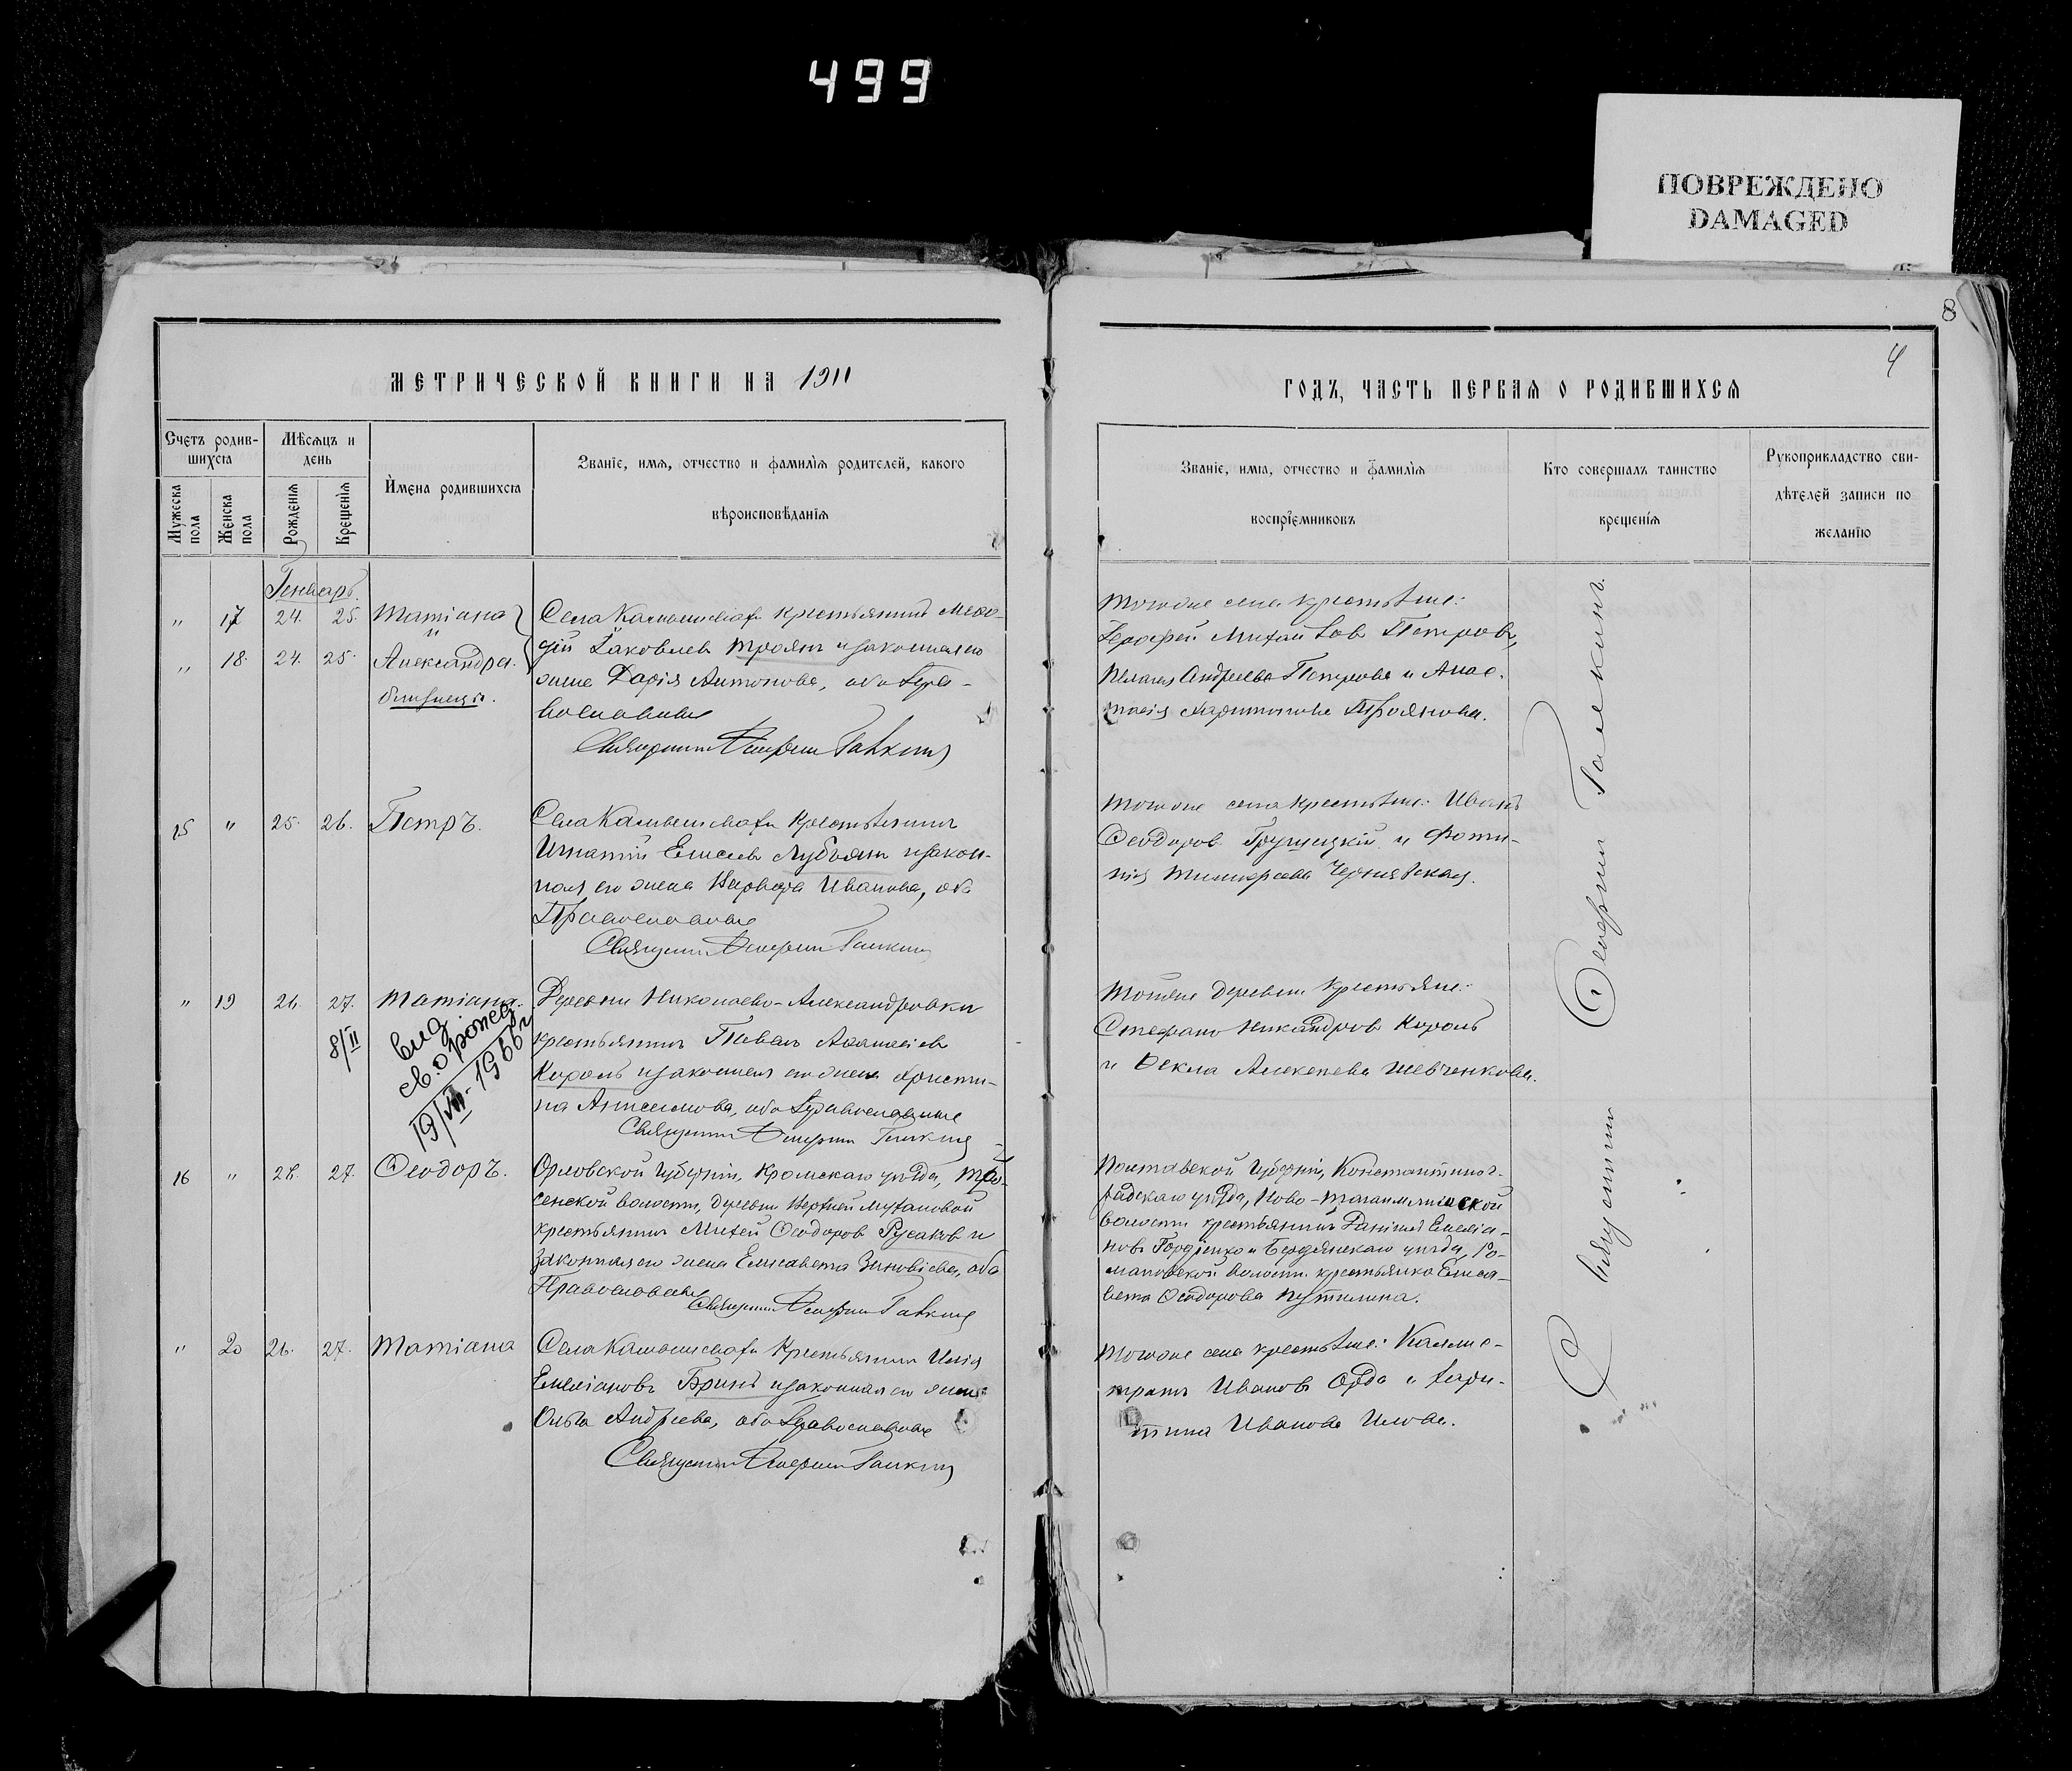 499
ПОВРЕЖДЕНО
DAMAGED
8
4
МЕТРИЧЕСКОЙ КНИГИ НА 1911
ГОДЪ, ЧАСТЬ ПЕРВАЯ О РОДИВШИХСЯ
Счетъ родив-
шихся
Мужеска пола
Женска пола
Мѣсяцъ и
день
Рожденія
Крещенія
Имена родившихся
Званіе, имя, отчество и фамилія родителей, какого
вѣроисповѣданія
Званіе, имя, отчество и фамилія
воспріемниковъ
Кто совершалъ таинство
крещенія
Рукоприкладство сви-
дѣтелей записи по
желанію
Генварь
" 17 24. 25. Татіана
и
" 18. 24. 25. Александра.
близнецы.
крестьянинъ Меѳо-
дій Іаковлевъ Троянъ и законная его
жена Дарія Антонова, оба Пра-
вославные
Священникъ Галкинъ
Тогоже села крестьяне:
Іероѳей Михайловъ Петровъ,
Пелагія Андреева Петрова и Анас-
тасія Харитонова Троянова.
15 " 25. 26. Петръ.
крестьянинъ
Игнатій Елисеевъ Лубянъ и закон-
ная его жена Варвара Иванова, оба
Православные
Священникъ Галкинъ
Тогоже села крестьяне: Иванъ
Ѳеодоровъ Грушицкій и Фоти-
нія Чернявская.
" 19 26. 27. Татіана.
8/II
выд
св. о рожд
19/VII-1966 г
Деревни Николаево-Александровки
крестьянинъ Аѳанасіевъ
Король и законная его жена Христи-
на Анисимова, оба Православные
Священникъ Галкинъ
Тойже деревни крестьяне:
Стефанъ Никандровъ Король
и Ѳекла Алексеева Шевченкова.
16 " 26. 27. Ѳеодоръ.
Орловской губерніи, Кромскаго уѣзда,
сенской волости, деревни Верхней Мухановой
крестьянинъ Михей Ѳеодоровъ Русаковъ и
законная его жена Елисавета Зиновіева, оба
Православные
Священникъ Галкинъ
Полтавской губерніи, Константиног-
радскаго уѣзда, Ново-
волости крестьянинъ Даніилъ Емеліа-
новъ Гордіенко и Бердянскаго уѣзда, Ро-
мановской волости крестьянка Елиса-
вета Ѳеодорова Путилина.
" 20 26. 27. Татіана
крестьянинъ Илія
Емеліановъ Бринь и законная его жена
Ольга Андреева, оба Православные
Священникъ Галкинъ
Тогоже села крестьяне: Каллис-
тратъ Ивановъ Орда и Хари-
тина Иванова
Священникъ Галкинъ.